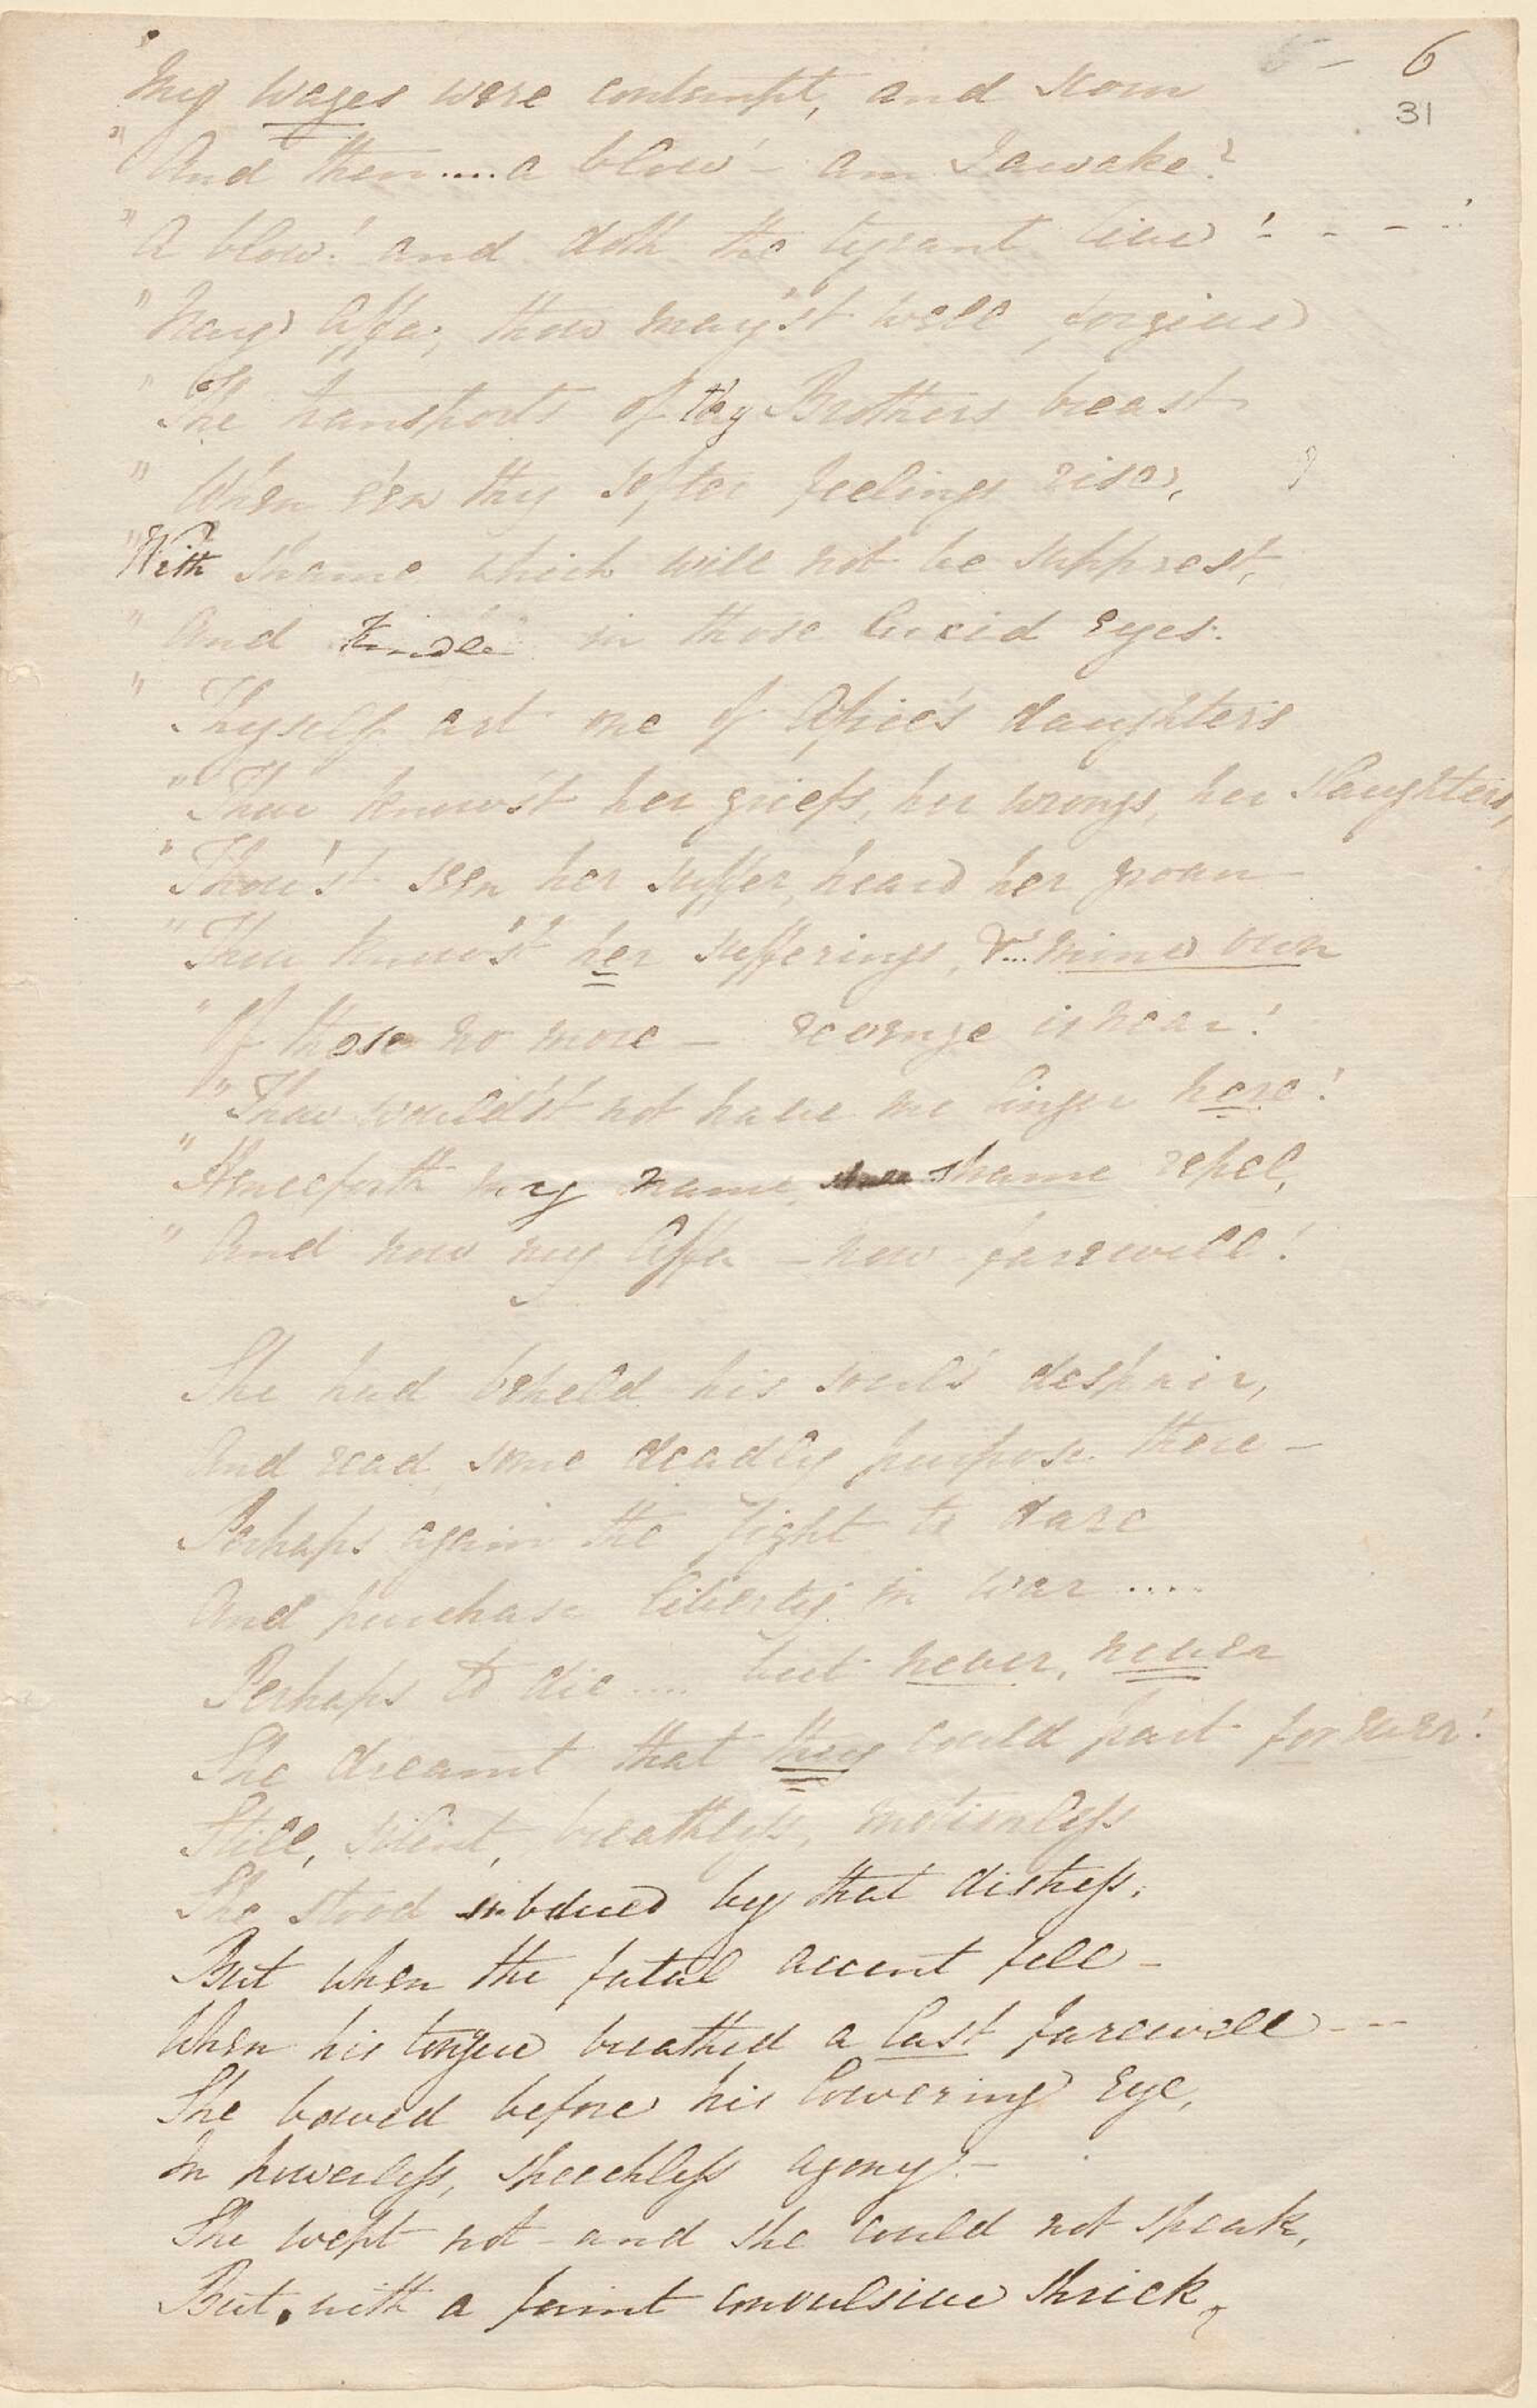 5 - 6
31
"My wages were contempt, and scorn
"And then .... a blow - am I awake?
"A blow! and doth the tyrant live! - - - !
"Nay Affa, thou may'st well forgive
"The transports of thy Brothers breast
"When e'en thy softer feelings rise,
"With shame which will not be supprest,
"And kindle in those lucid eyes.
"Thyself art one of Afric's daughters
"Thou know'st her griefs, her wrongs, her slaughters,
"Thou'st seen her suffer, heard her groan
"Thou know'st her sufferings, & ... mine own
"Of these no more - revenge is near!
"Thou would'st not have me linger here!
"Henceforth my name, shame repel,
"And now my Affa - now farewell!
She had beheld his soul's despair,
And read some deadly purpose there -
Perhaps again the fight to dare
And purchase liberty in war ....
Perhaps to die .... but never, never
She dreamt that they could part for ever!
Still, silent, breathless, motionless
She stood subdued by that distress,
But when the fatal accent fell -
When his tongue breathed a last farewell - - -
She bowed before his lowering eye,
In powerless, speechless agony! -
She wept not - and she could not speak,
But, with a faint convulsive shriek,